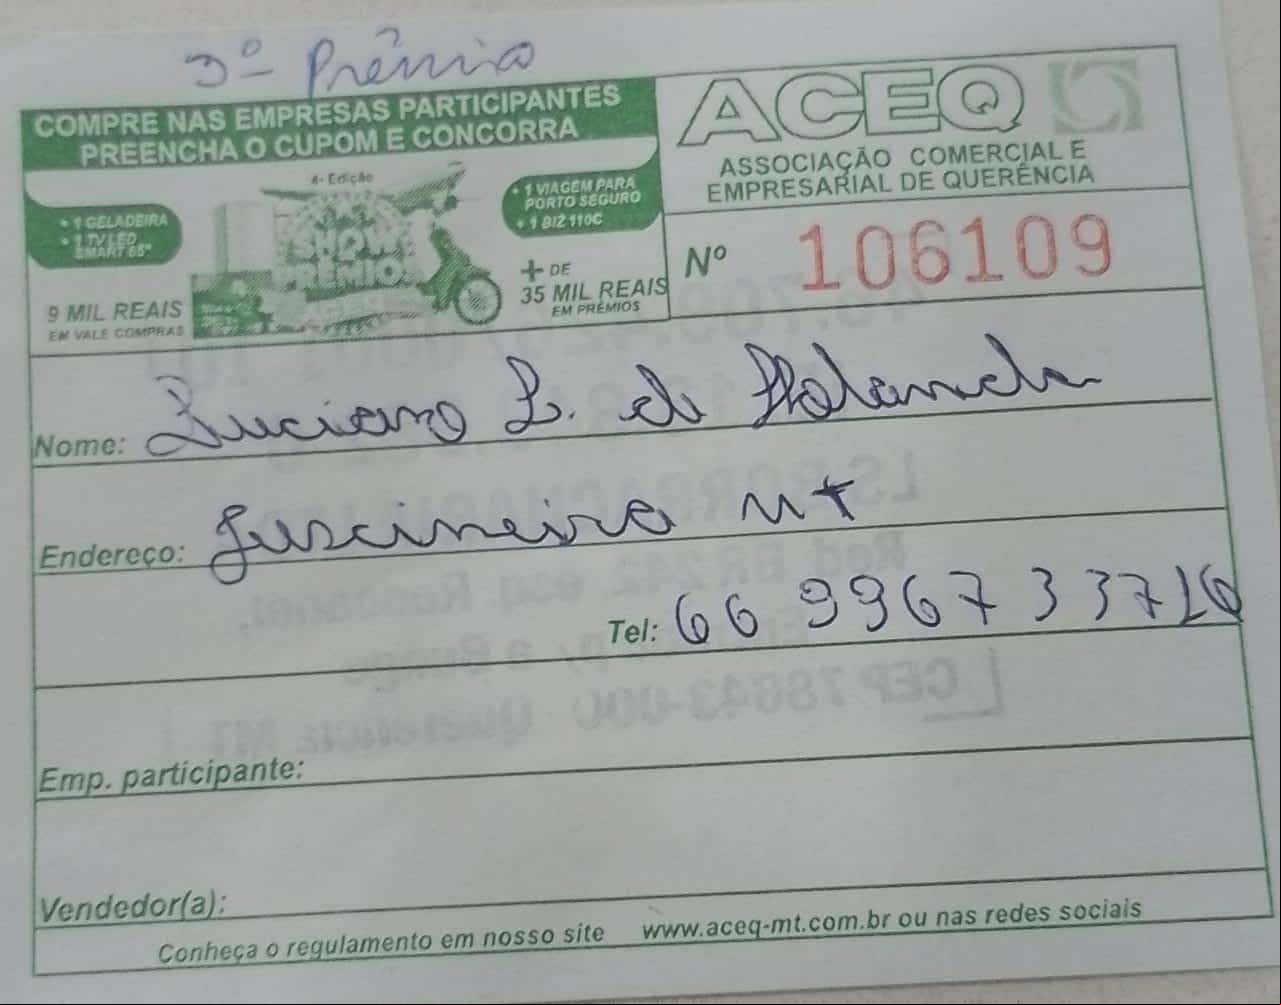 3º Prêmio
COMPRE NAS EMPRESAS PARTICIPANTES
PREENCHA O CUPOM E CONCORRA
4ª Edição
• 1 GELADEIRA
• 1 TV LED
SMART 65"
SHOW DE
PRÊMIOS
• 1 VIAGEM PARA
PORTO SEGURO
• 1 BIZ 110C
9 MIL REAIS
EM VALE COMPRAS
+ DE
35 MIL REAIS
EM PRÊMIOS
ACEQ
ASSOCIAÇÃO COMERCIAL E
EMPRESARIAL DE QUERÊNCIA
Nº 106109
Nome: Luciano L. de Holanda
Endereço: Juscineira MT
Tel: 66 99673 3716
Emp. participante:
Vendedor(a):
Conheça o regulamento em nosso site www.aceq-mt.com.br ou nas redes sociais